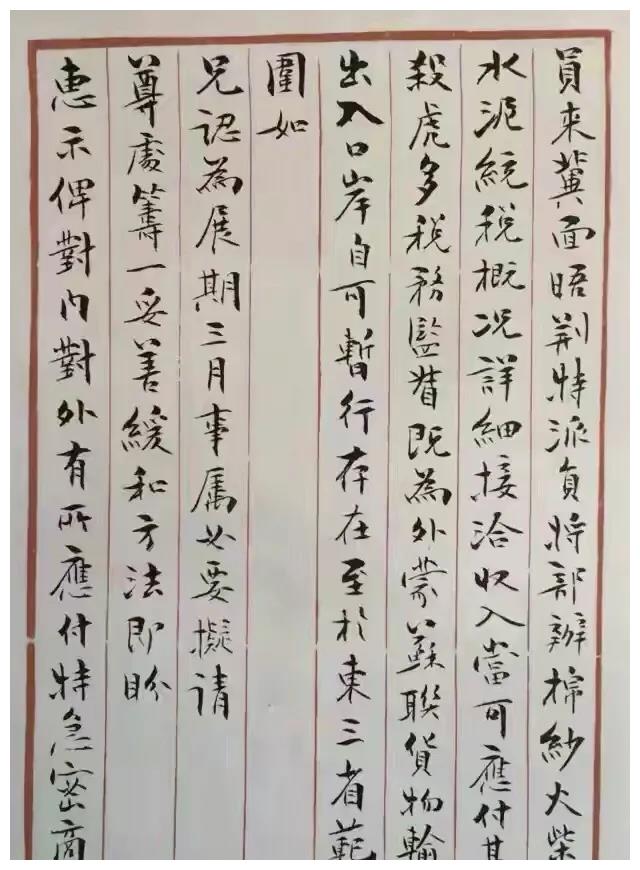 員来冀面晤荆特派員将部辦棉紗火柴
水泥統税概况詳細接洽收入當可應付其
殺虎多税務監督既為外蒙蘇聯貨物輸
出入口岸自可暫行存在至於東三省範
圍如
兄認為展期三月事属必要擬請
尊處籌一妥善緩和方法即盼
惠示俾對内對外有所應付特急密商